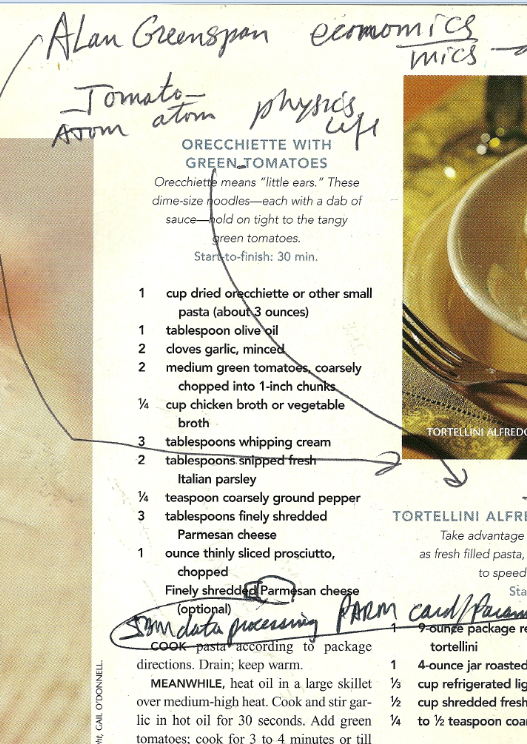 Alan Greenspan economics
mics
Tomato
atom atom physics
life
ORECCHIETTE WITH
GREEN TOMATOES
Orecchiette means "little ears." These
dime-size noodles—each with a dab of
sauce—hold on tight to the tangy
green tomatoes.
Start-to-finish: 30 min.
1 cup dried orecchiette or other small
pasta (about 3 ounces)
1 tablespoon olive oil
2 cloves garlic, minced
2 medium green tomatoes, coarsely
chopped into 1-inch chunks
¼ cup chicken broth or vegetable
broth
3 tablespoons whipping cream
2 tablespoons snipped fresh
Italian parsley
¼ teaspoon coarsely ground pepper
3 tablespoons finely shredded
Parmesan cheese
1 ounce thinly sliced prosciutto,
chopped
Finely shredded Parmesan cheese
(optional)
IBM data processing PARM card/Param
COOK pasta according to package
directions. Drain; keep warm.
MEANWHILE, heat oil in a large skillet
over medium-high heat. Cook and stir gar-
lic in hot oil for 30 seconds. Add green
tomatoes; cook for 3 to 4 minutes or till
TORTELLINI ALFREDO
TORTELLINI ALFR
Take advantage
as fresh filled pasta,
to speed
Sta
1 9-ounce package re
tortellini
1 4-ounce jar roasted
⅓ cup refrigerated lig
½ cup shredded fresh
¼ to ½ teaspoon coa
ht, GAIL O'DONNELL.